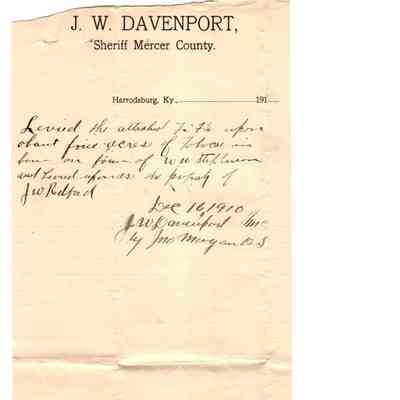 J. W. DAVENPORT,
Sheriff Mercer County.
Harrodsburg, Ky. 191
Levied the attached Fi Fa upon
about five acres of Tobacco in
barn on farm of W W Stephenson
and the property of
J W Redford
Dec 16, 1910
J W Davenport
by Jno Morgan D. S.